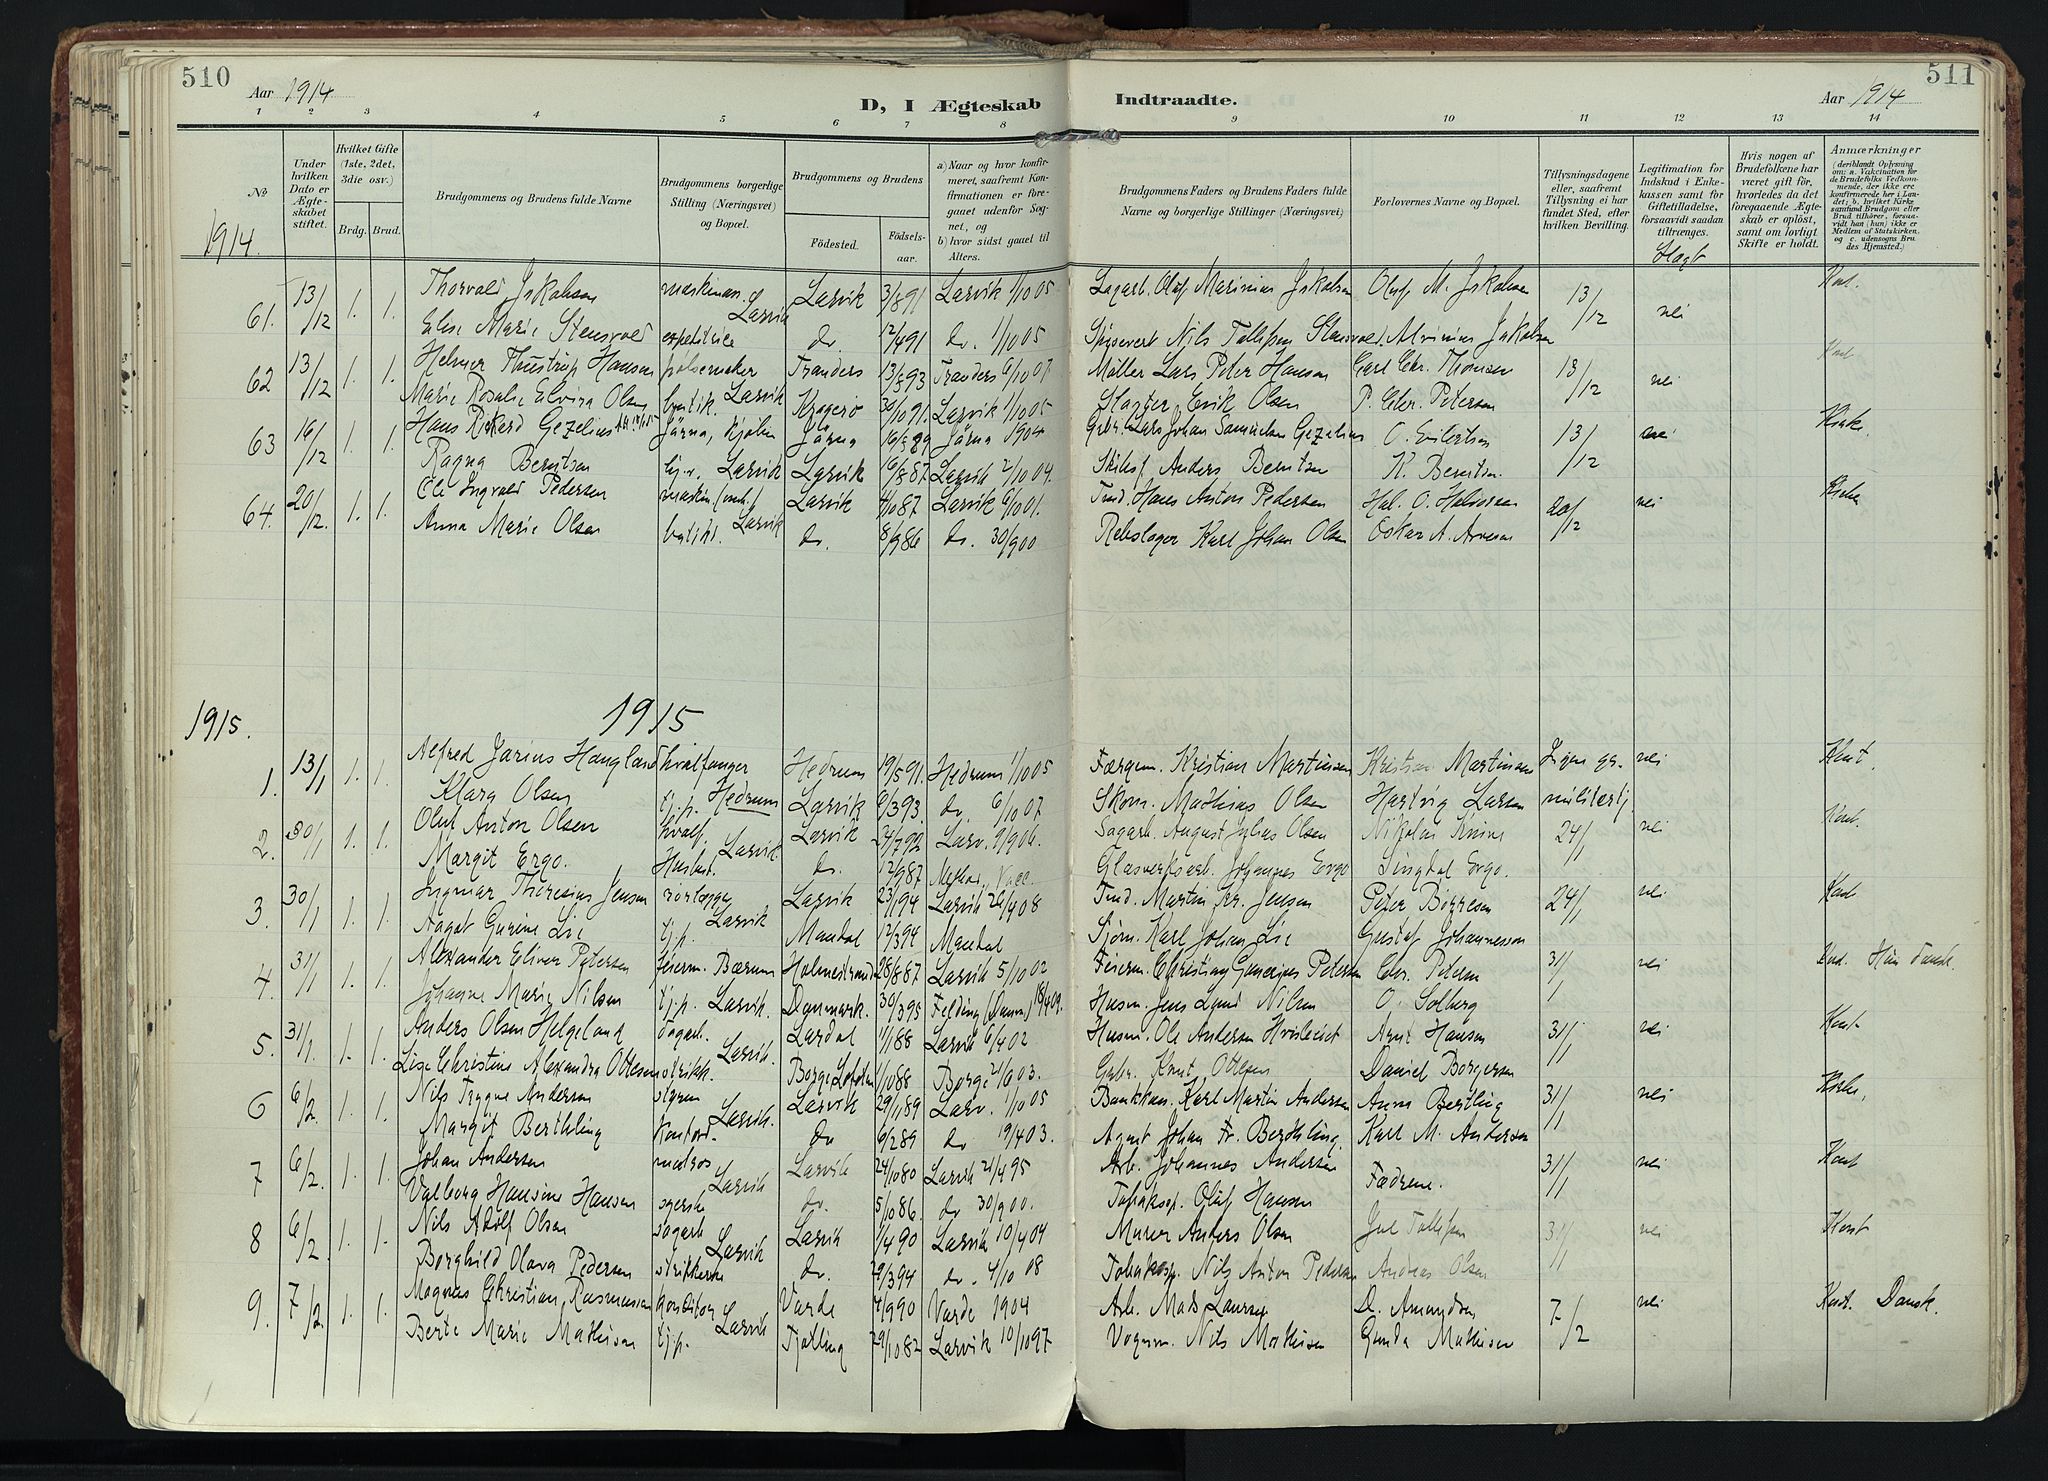 510
Aar 1914
D, I Ægteskab
Indtraadte.
Aar 1914
511
1 2 3 4 5 6 7 8 9 10 11 12 13 14
No
Under hvilken Dato er Ægteskabet stiftet.
Hvilket Gifte (1ste, 2det, 3die osv.)
Brdg. Brud.
Brudgommens og Brudens fulde Navne
Brudgommens borgerlige Stilling (Næringsvei) og Bopæl.
Brudgommens og Brudens
Födested.
Födselsaar.
a) Naar og hvor konfirmeret, saafremt Konfirmationen er foregaaet udenfor Sognet, og
b) hvor sidst gaaet til Alters.
Brudgommens Faders og Brudens Faders fulde Navne og borgerlige Stillinger (Næringsvei)
Forlovernes Navne og Bopæl.
Tillysningsdagene eller, saafremt Tillysning ei har fundet Sted, efter hvilken Bevilling.
Legitimation for Indskud i Enkekassen samt for Giftetilladelse, forsaavidt saadan tiltrænges.
Hvis nogen af Brudefolkene har været gift för, hvorledes da det foregaaende Ægteskab er oplöst, samt om lovligt Skifte er holdt.
Anmærkninger
(deriblandt Oplysning om: a. Vaccination for de Brudefolks Vedkommende, der ikke ere konfirmerede her i Landet; b. hvilket Kirkesamfund Brudgom eller Brud tilhörer, forsaavidt han (hun) ikke er Medlem af Statskirken, og c. udensogns Brudes Hjemsted.)
1914.
Slagt
61. 13/12 1. 1. Thorvald Jakobsen maskinar. Larvik Larvik 3/8 91 Larvik 1/10 05 Sagarb. Oluf Marinius Jakobsen Oluf M. Jakobsen 13/12 nei
Else Marie Stensvold expeditrice do. 12/4 91 do. 1/10 05 Nils Tollefsen Stensvold Marinius Jakobsen
62 13/12 1. 1. Helmer Thustrup Hansen pølsemaker Tranders 13/8 93 Tranders 6/10 07 Møller Lars Peter Hansen Carl Chr. Thomsen 13/12 nei
Marie Rosalie Elvira Olsen butik. Larvik Kragerø 30/10 91 Larvik 1/10 05 Slagter Erik Olsen P. Chr. Petersen
63 16/12 1. 1. Hans Rikard Gezelius Järna, Järna Järna 1904 Lars Johan Samuelsen Gezelius O. Eilertsen 13/12 nei Kirke.
Ragna Berntsen Larvik Larvik 16/8 87 Larvik 2/10 04. Anders Berntsen K. Berntsen
64. 20/12. 1. 1. Ole Ingvald Pedersen maskin Larvik 4/10 87 Larvik 6/10 01. Tind. Hans Anton Pedersen Hal. O. Halvorsen 20/12 nei Kirke
Anna Marie Olsen Larvik do. 8/9 86 do. 30/9 00 Rebslager Karl Johan Olsen Oskar A. Arnesen
1915.
1915
1. 13/1 1. 1. Alfred Jarius Haugland hvalfanger Hedrum 19/5 91. Hedrum 1/10 05 Færgem. Kristian Martinsen Kristian Martinsen nei Kont.
Klara Olsen tj.p. Hedrum Larvik 8/3 93. do. 6/10 07 Skom. Mathias Olsen Hartvig Larsen
2. 30/1 1. 1. Oluf Anton Olsen hvalf. Larvik Larvik 24/7 92 Larv. 9/9 06. Sagarb. August Julius Olsen 24/1 nei Kont.
Margit Ergo. Husbest. do. 12/9 87 Glasverksarb. Johannes Ergo Ergo.
3. 30/1 1. 1. Ingmar Theresius Jensen rørlægger Larvik Larvik 23/1 94 Larvik 26/4 08 Tind. Martin Kr. Jensen Peter Børresen 24/1 nei Kont
Aagot Gurine Lie tj.p. Mandal 12/3 94 Mandal Sjøm. Karl Johan Lie Gustaf Johannesson
4. 31/1 1. 1. Alexander Eliver Petersen feierm. Bærum Holmestrand 28/8 87 Larvik 5/10 02 Feierm. Christian Petersen Chr. Petersen 31/1 nei Hun Dansk.
Johanne Marie Nilsen tj.p. Larvik. Danmark. 30/3 95 Felding (Danm.) 18/4 09. Husm. Jens Lund Nilsen O. Solberg
5. 31/1. 1. 1. Anders Olsen Helgeland Sagarb. Larvik. Lardal 11/1 88 Larvik 6/4 02 Husm. Ole Andersen Arnt Hansen 31/1 nei Kont.
Lise Christine Alexandra Ottesen strikk. Borge Lofoten 1/10 88 Borge 21/6 03. Gbr. Knut Ottesen Daniel Borgersen
6 6/2. 1. 1. Nils Trygve Andersen styrm Larvik. Larvik 29/1 89 Larv. 1/10 05 Bankkas. Karl Martin Andersen Anna Berthling 31/1 nei Kirke,
Margit Berthling Kontord. do 6/2 89 do 19/4 03. Agent Johan Fr. Berthling. Karl M. Andersen
7 6/2. 1. 1. Johan Andersen matros Larvik Larvik 24/10 80 Larvik 21/4 95 Arb. Johannes Andersen Fædrene. 31/1 nei Kont
Valborg Hansine Hansen syerske do. 5/10 86. do 30/9 00. Tobaksp. Oluf Hansen
8 6/2 1. 1. Nils Adolf Olsen sagarb Larvik Larvik 1/4 90 Larvik 10/4 04 Murer Anders Olsen Jul Tollefsen 31/1 nei Kont
Borghild Olava Pedersen strikkerske do. 9/3 94 do. 4/10 08 Tobaksp. Nils Anton Pedersen Andreas Olsen
9. 7/2 1. 1. Magnus Christian Rasmussen konditor Larvik Varde 4/9 90 Varde 1904 Arb. Mads Laursen D. Amundsen 7/2 nei Kont. Dansk.
Berte Marie Mathisen tj.p. Tjølling 29/10 82 Larvik 10/10 97 Vognm. Nils Mathisen Gunda Mathisen